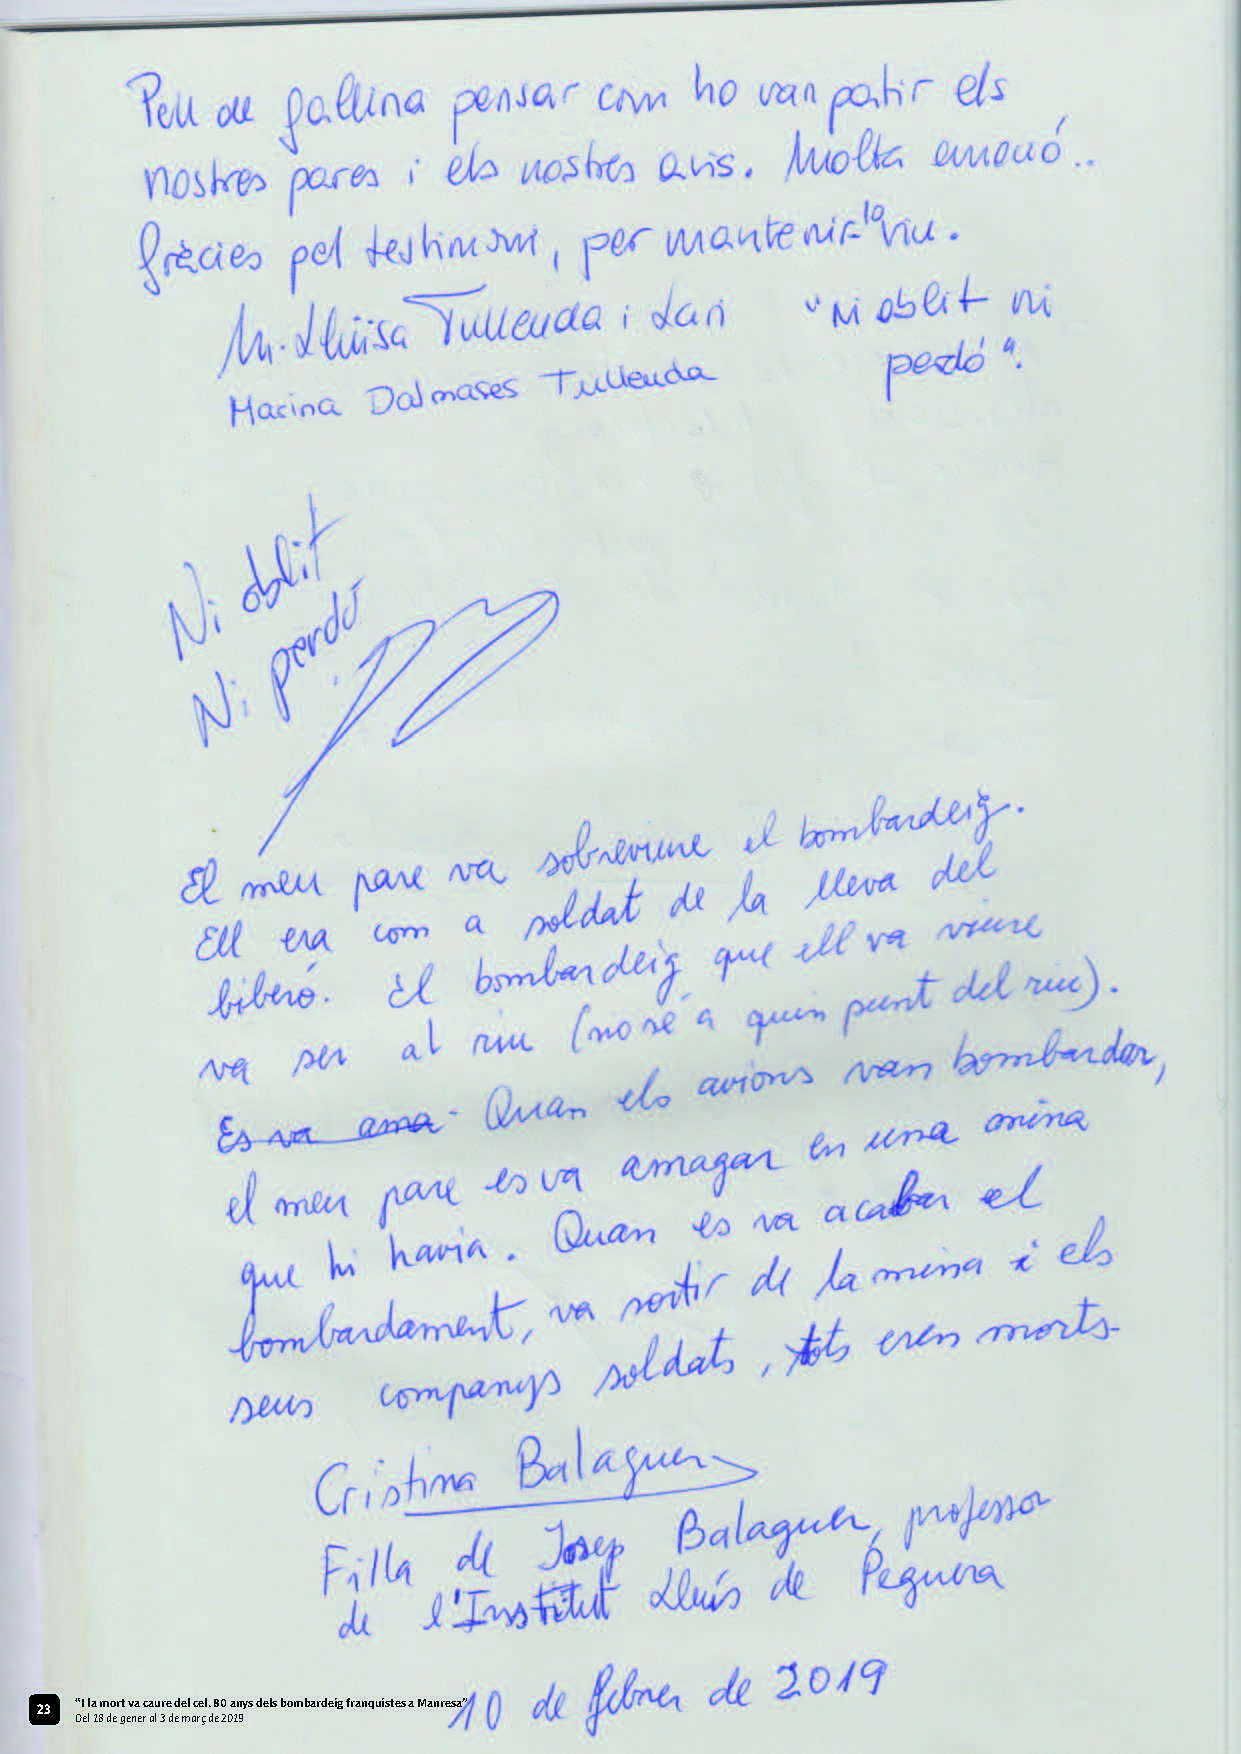 Pell de gallina pensar com ho van patir els
nostres pares i els nostres avis. Molta emoció..
Gràcies pel testimoni, per mantenir-lo viu.
M. Lluïsa Tulleuda i Lari
"Ni oblit ni
perdó".
Marina Dalmases Tulleuda
Ni oblit
Ni perdó
El meu pare va sobreviure el bombardeig.
Ell era com a soldat de la lleva del
biberó. El bombardeig que ell va viure
va ser al riu (no sé a quin punt del riu).
Es va ama. Quan els avions van bombardar,
el meu pare es va amagar en una mina
que hi havia. Quan es va acabar el
bombardament, va sortir de la mina i els
seus companys soldats, tots eren morts.
Cristina Balaguer
Filla de Josep Balaguer, professor
de l'Institut Lluís de Peguera
10 de febrer de 2019
23
"I la mort va caure del cel. 80 anys dels bombardeig franquistes a Manresa"
Del 18 de gener al 3 de març de 2019